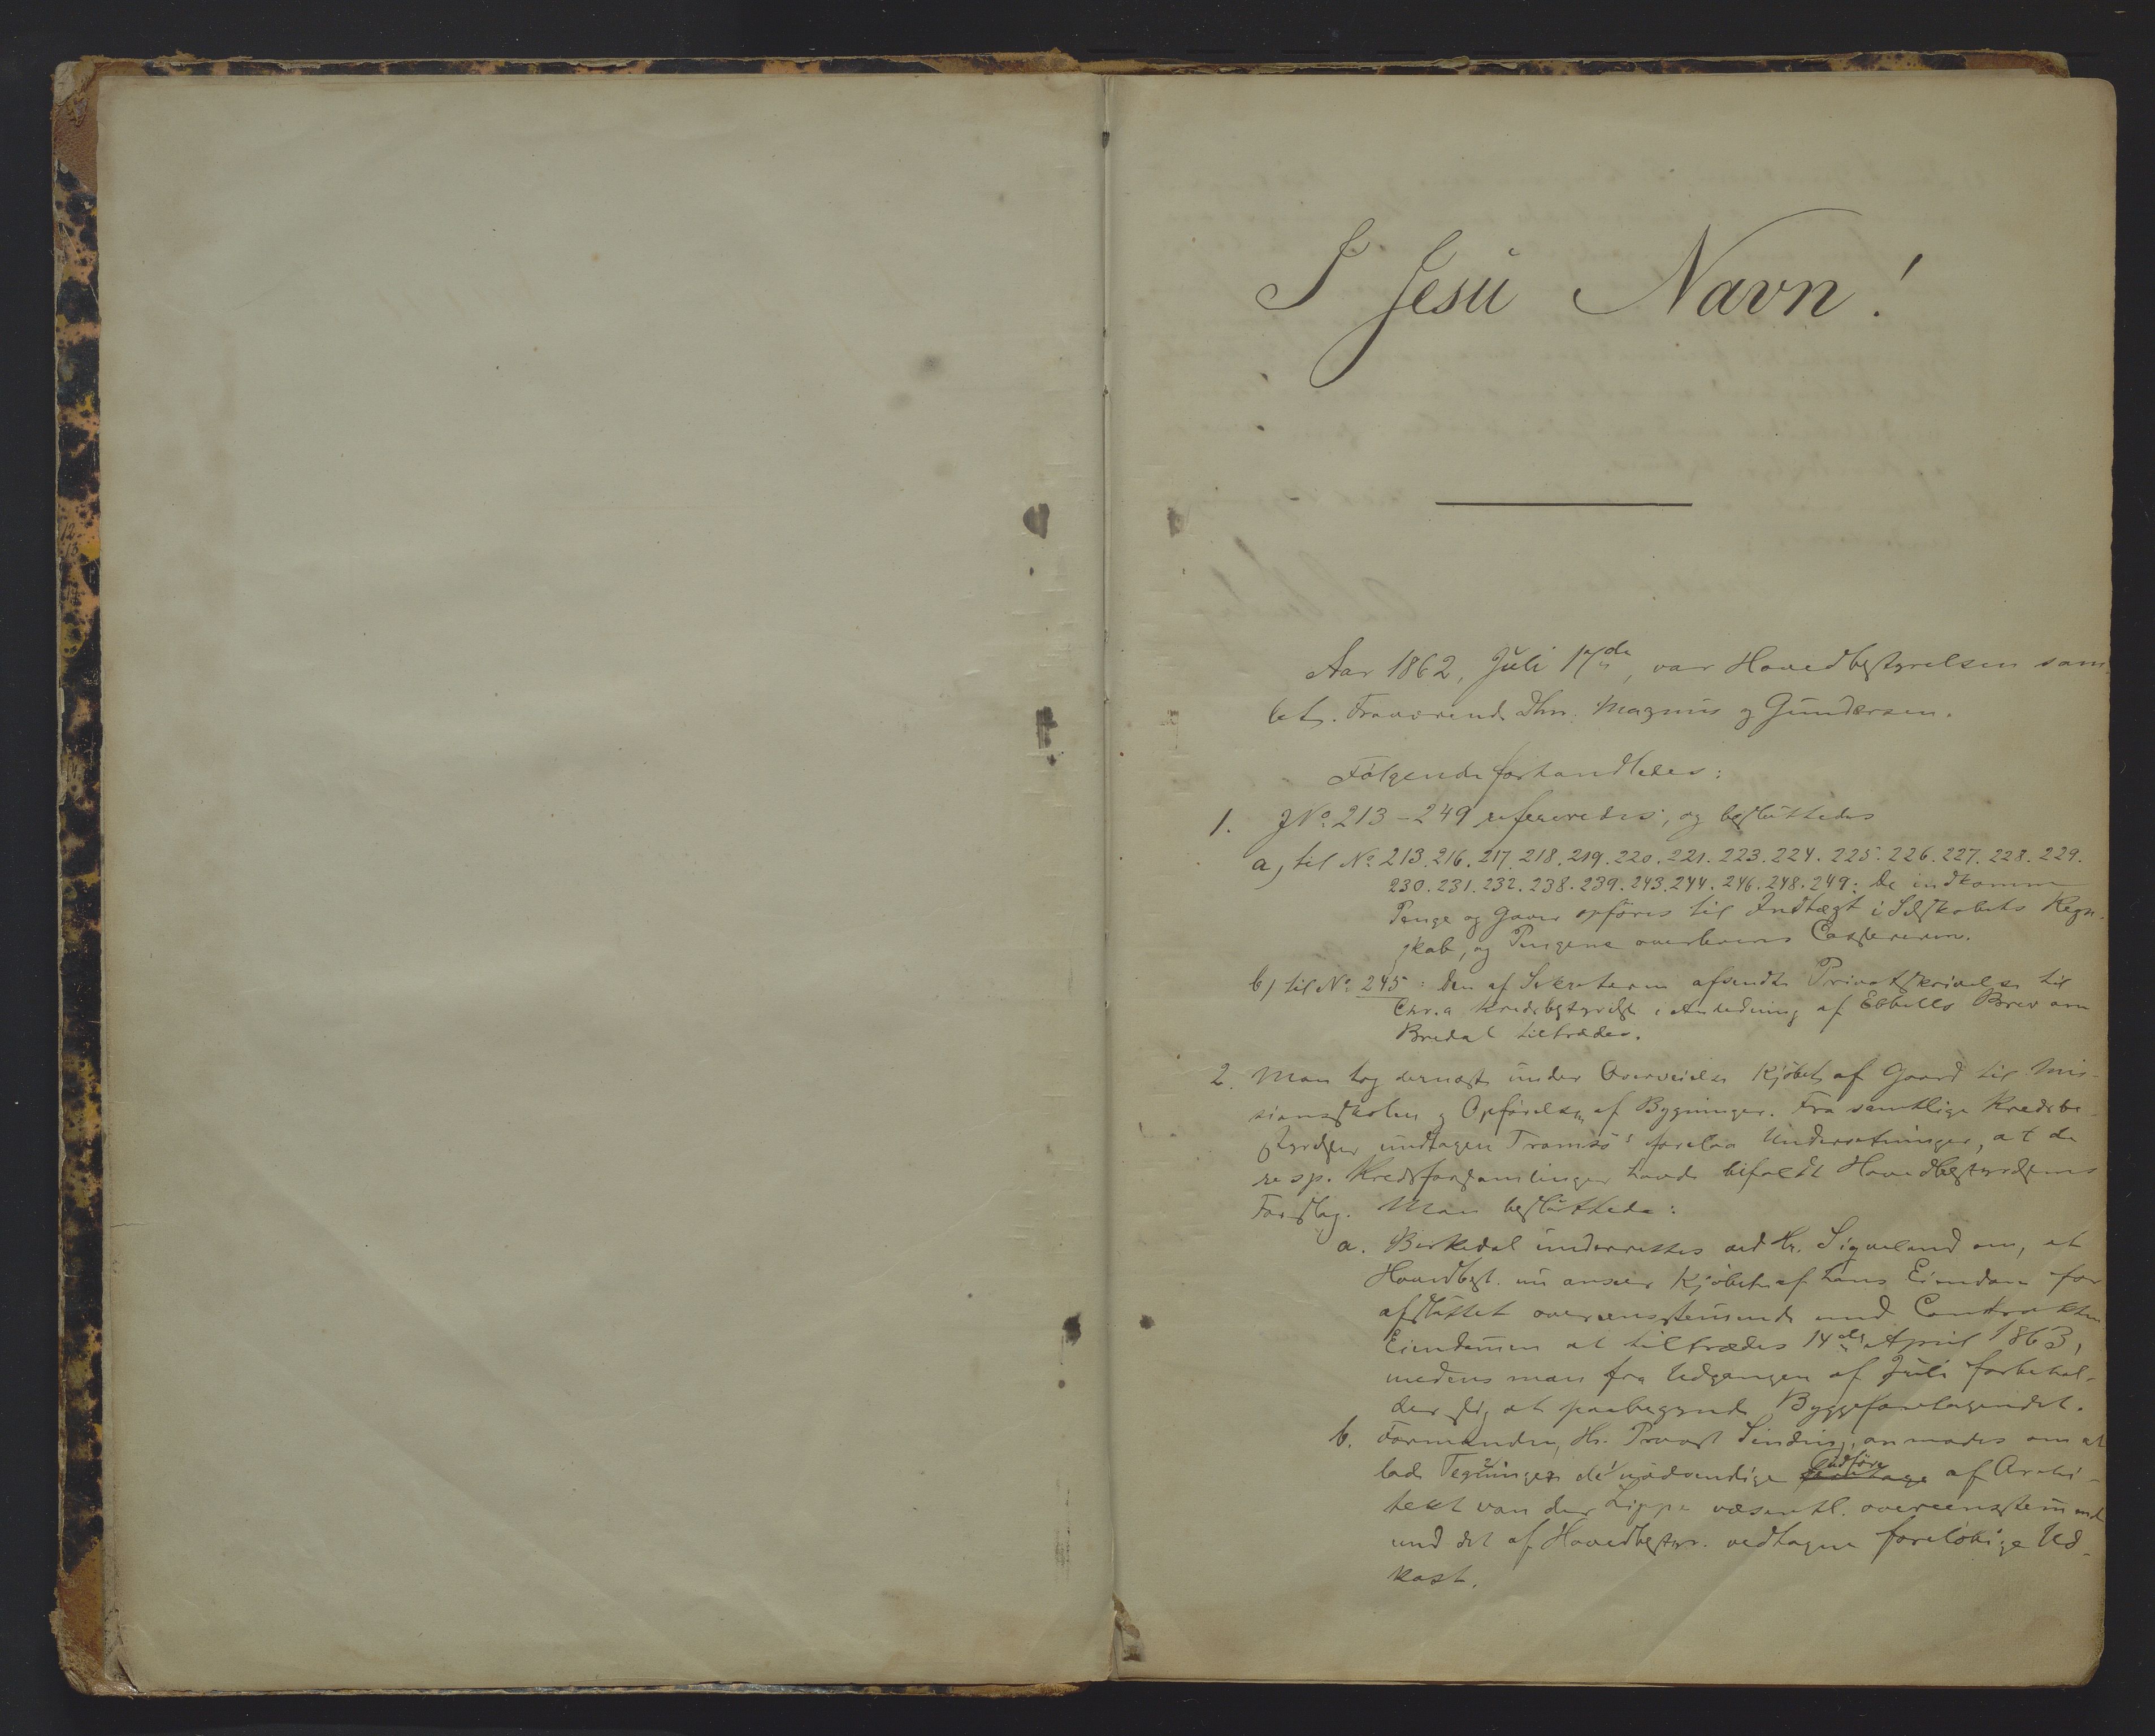 I Jesu Navn!
Aar 1862, Juli 17de, var Hovedbestyrelsen sam-
let. Fraværende Dhrr. Magnus og Gundersen.
Følgende forhandledes:
1. JNo. 213-249 refereredes, og besluttedes
a, til No. 213. 216. 217. 218. 219. 220. 221. 223. 224. 225. 226. 227. 228. 229.
230. 231. 232. 238. 239. 243. 244. 246. 248. 249: De indkomne
Penge og Gaver opføres til Indtægt i Selskabets Regn-
skab, og Pengene overleveres Cassereren.
b) til No. 245: Den af Sekretæren afsendte Privatskrivelse til
Chr.a Kredsbestyrelse i Anledning af Ebbells Brev om
Bredal tiltrædes.
2. Man tog dernæst under Overveielse Kjøbet af Gaard til Mis-
sionsskolen og Opførelsen af Bygninger. Fra samtlige Kredsbe-
styrelser undtagen Tromsø's forelaa Underretninger, at de
resp. Kredsforsamlinger havde bifaldt Hovedbestyrelsens
Forslag. Man besluttede:
a. Birkedal underrettes ved Hr. Sigveland om, at
Hovedbest. nu anseer Kjøbet af hans Eiendom for
afsluttet overensstemmende med Contrakten
Eiendommen at tiltrædes 14de April 1863,
medens man fra Udgangen af Juli forbehol-
der sig at paabegynde Byggeforetagendet.
b. Formanden, Hr. Provst Sinding, anmodes om at
lade Tegninger de nødvendige udføre af Archi-
tekt von der Lippe væsentl. overeensstemmende
med det af Hovedbestyr. vedtagne foreløbige Ud-
kast.
12.
13